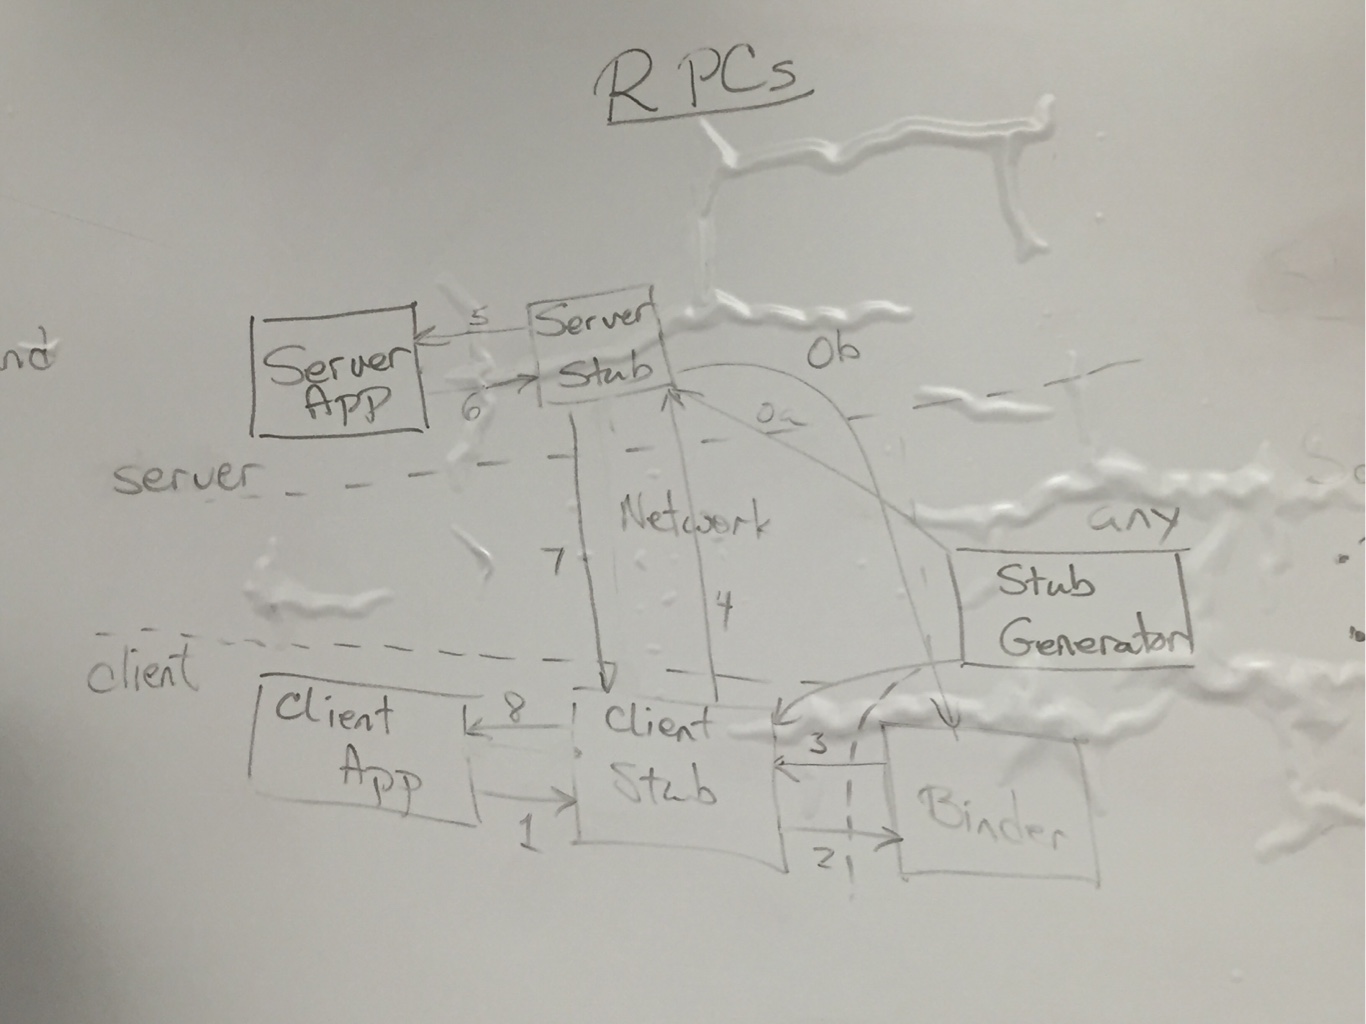 RPCs
nd
5
Server
Stub
Server
App
6
0b
0a
server
Network
7
4
any
Stub
Generator
client
Client
App
8
1
Client
Stub
3
2
Binder